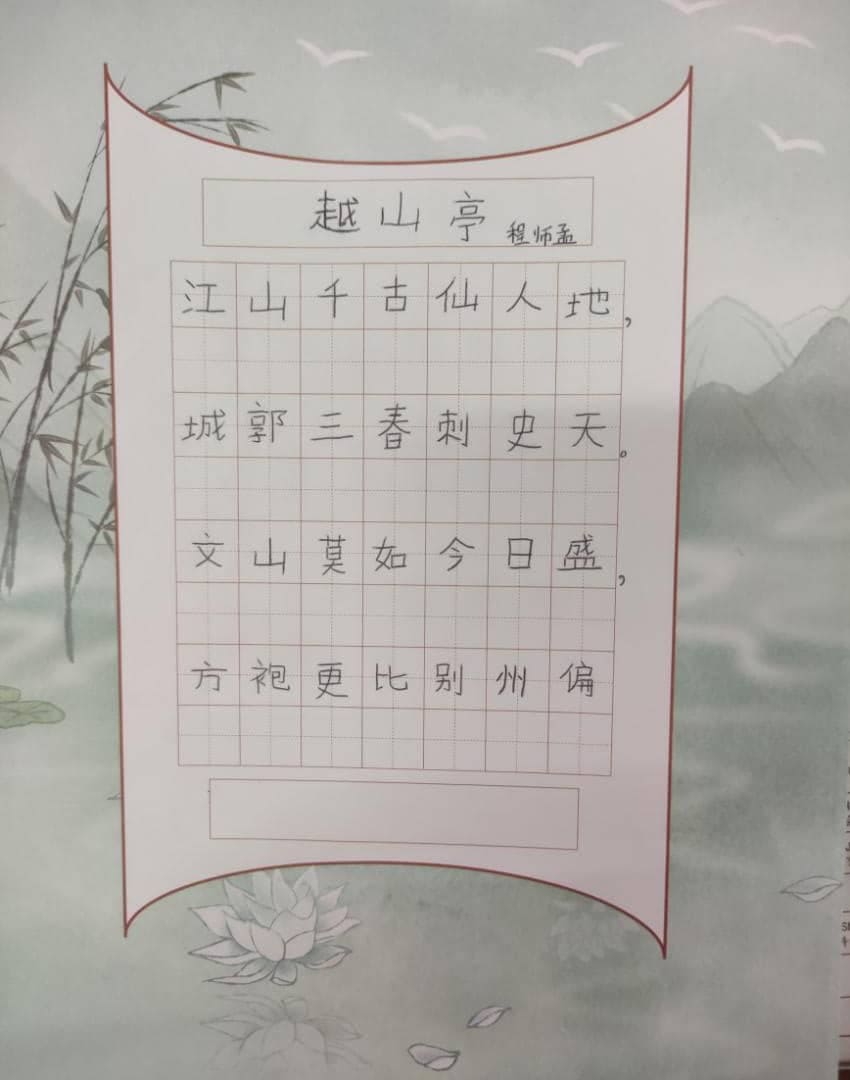 越山亭 程师孟
江山千古仙人地，
城郭三春刺史天。
文山莫如今日盛，
方袍更比别州偏